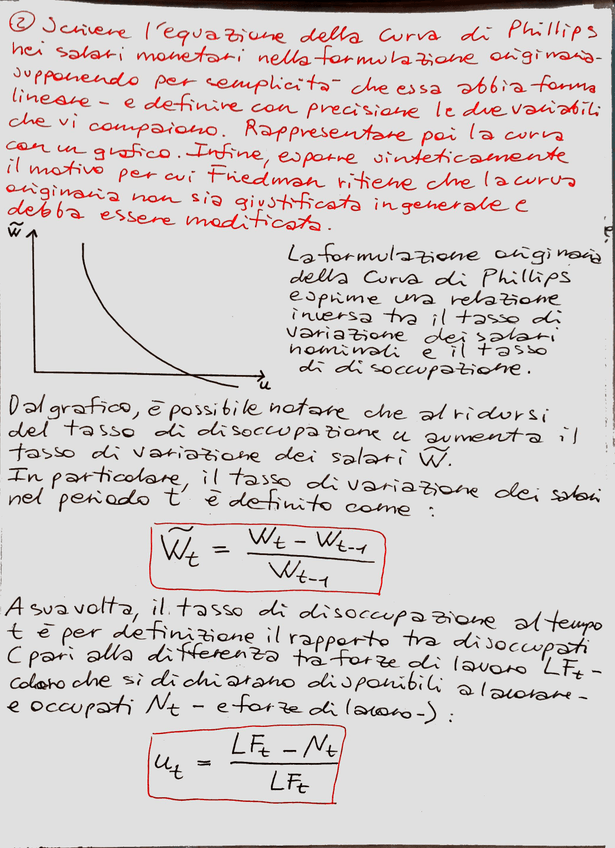 ② Scrivere l'equazione della Curva di Phillips
nei salari monetari nella formulazione originaria -
supponendo per semplicità che essa abbia forma
lineare - e definire con precisione le due variabili
che vi compaiono. Rappresentare poi la curva
con un grafico. Infine, esporre sinteticamente
il motivo per cui Friedman ritiene che la curva
originaria non sia giustificata in generale e
debba essere modificata.
W̃
u
La formulazione originaria
della Curva di Phillips
esprime una relazione
inversa tra il tasso di
variazione dei salari
nominali e il tasso
di disoccupazione.
Dal grafico, è possibile notare che al ridursi
del tasso di disoccupazione u aumenta il
tasso di variazione dei salari W̃.
In particolare, il tasso di variazione dei salari
nel periodo t è definito come :
W̃t = (Wt - Wt-1) / Wt-1
A sua volta, il tasso di disoccupazione al tempo
t è per definizione il rapporto tra disoccupati
(pari alla differenza tra forze di lavoro LFt -
coloro che si dichiarano disponibili a lavorare -
e occupati Nt - e forze di lavoro -) :
ut = (LFt - Nt) / LFt